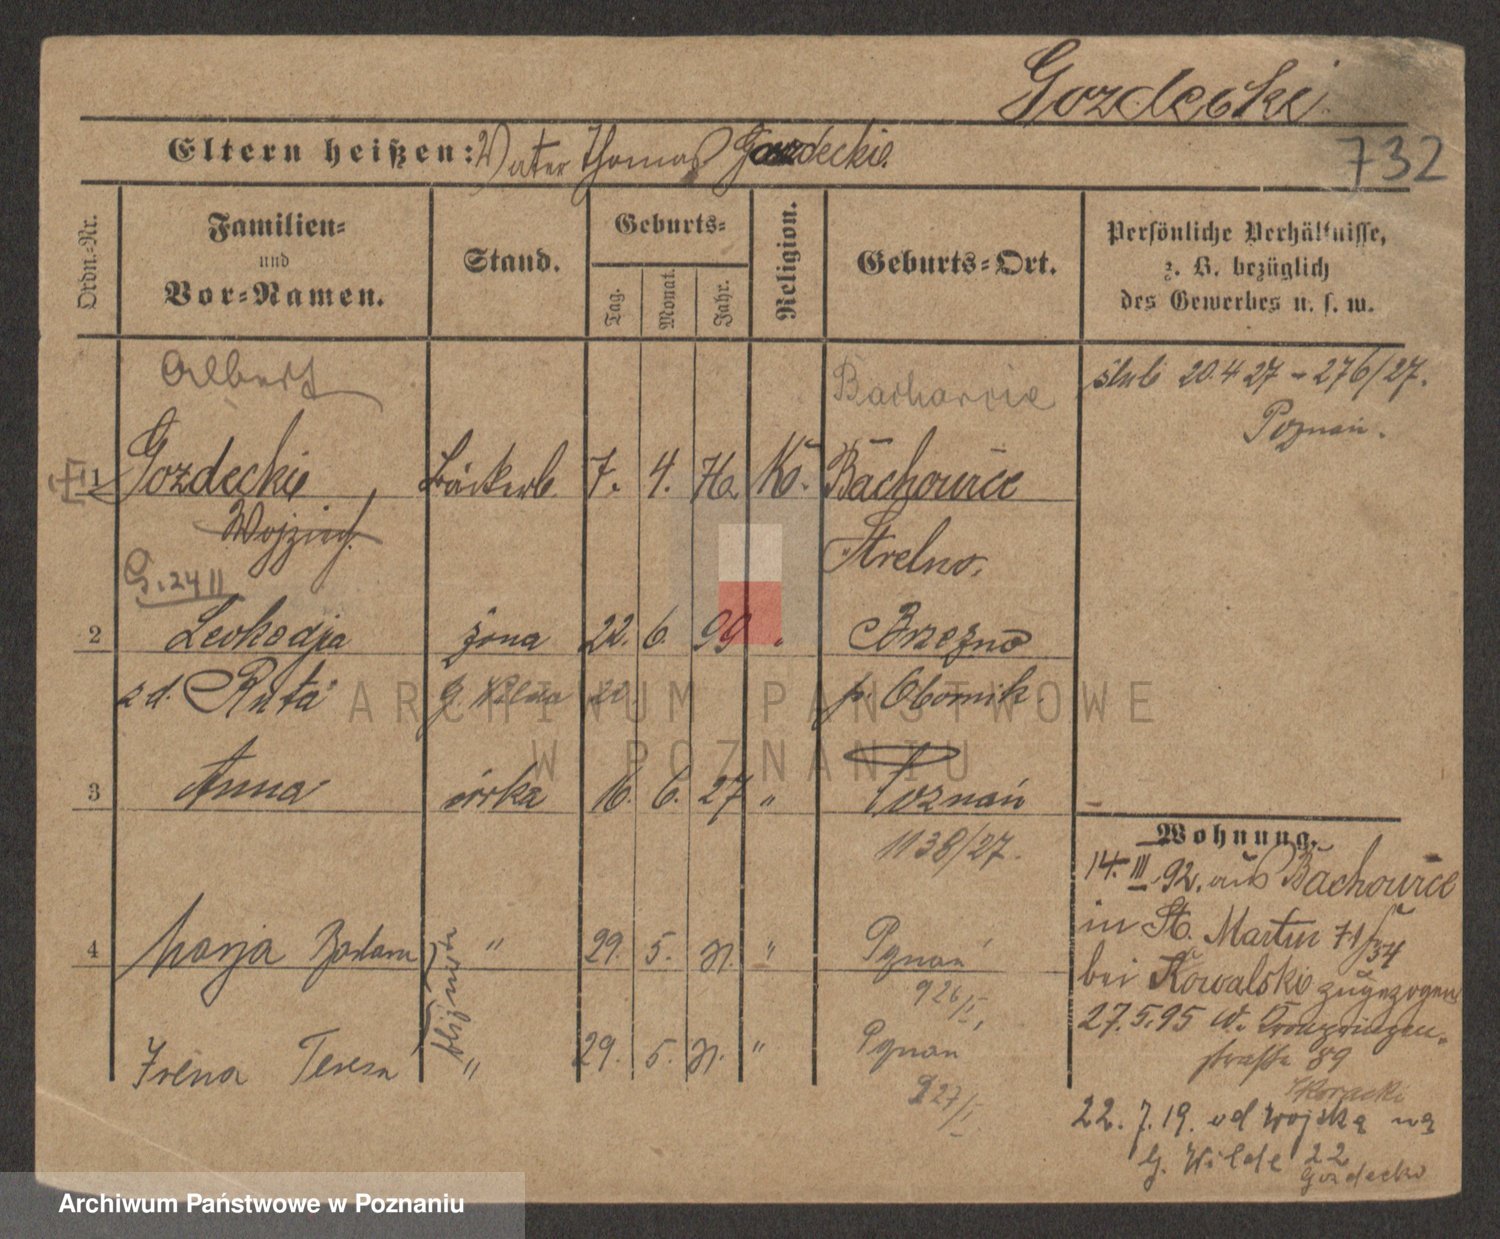 Gozdecki
732
Eltern heißen: Vater Thomas Gozdecki.
Ordn.-Nr.
Familien-
und
Vor-Namen.
Stand.
Geburts-
Tag.
Monat.
Jahr.
Religion.
Geburts-Ort.
Persönliche Verhältnisse,
z. B. bezüglich
des Gewerbes u. s. w.
Albert
ślub 20.4 27 - 276/27.
Poznań.
1 Gozdecki 7. 4. K.
Strelno.
G. 24 II
2 Leokadja żona 22. 6. 99 "
z d. Ruta p. Obornik
3 Anna córka 16. 6. 27 " Poznań
1138/27.
Wohnung.
14. III. 92. aus
in St. Martin 71/34
bei Kowalski zugezogen
27.5.95 W. Kronprinzen-
straße 89
22. 7. 19. od wojska na
G. Wilde 22
Gozdecki
4 Marja Barbara " 29. 5. 31. "
926/I
bliźnięta
Irena Teresa " 29. 5. 31. "
927/I
ARCHIWUM PAŃSTWOWE
W POZNANIU
Archiwum Państwowe w Poznaniu